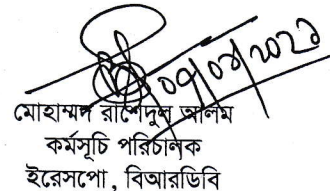 ০৭/০৪/২০২১
মোহাম্মদ রাশেদুল আলম
কর্মসূচি পরিচালক
ইরেসপো, বিআরডিবি